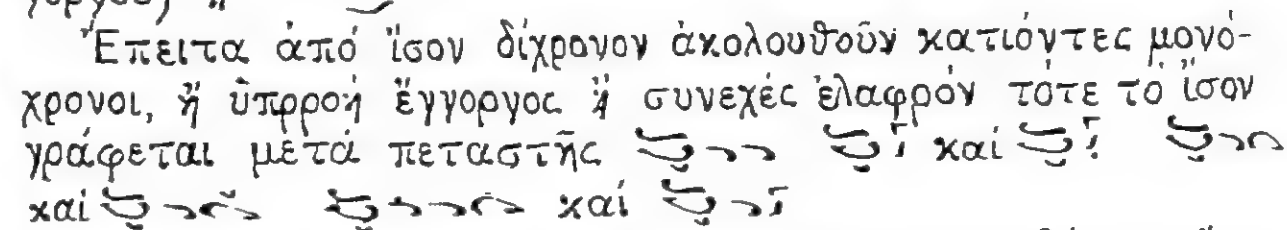 Ἔπειτα ἀπό ἴσον δίχρονον ἀκολουθοῦν κατιόντες μονό-
χρονοι, ἤ ὑπρροή ἔγγοργος ἤ συνεχές ἐλαφρόν τότε τό ἴσον
γράφεται μετά πεταστῆς καί
καί καί